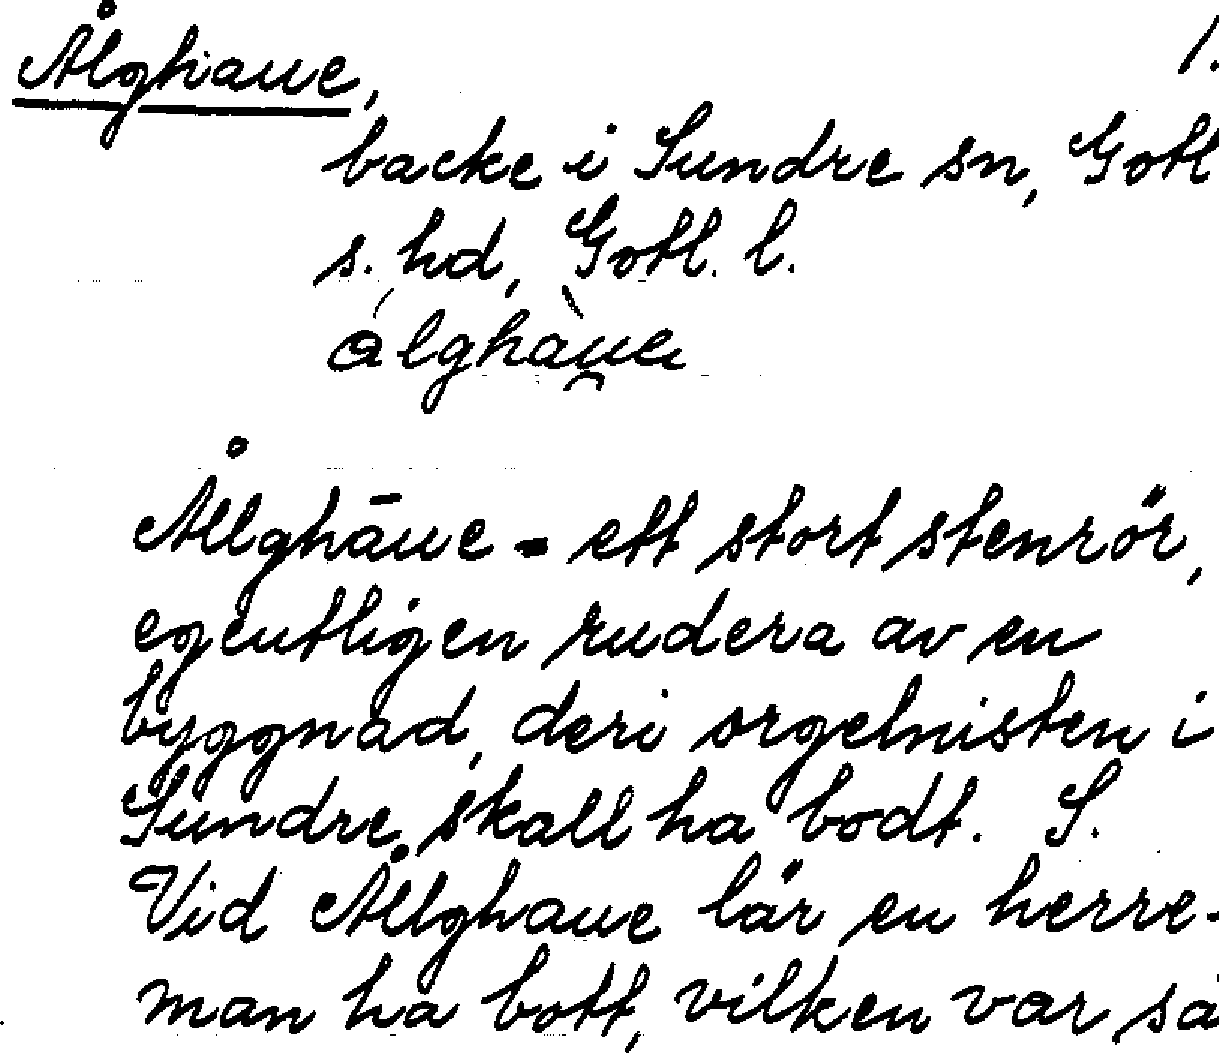 Ålghaue, 1.
backe i Sundre sn, Gotl
s. hd, Gotl. l.
Ållghāue - ett stort stenrör,
egentligen rudera av en
byggnad, deri orgelnisten i
Sundre skall ha bodt. S.
Vid Ållghaue lär en herre-
man ha bott, vilken var så